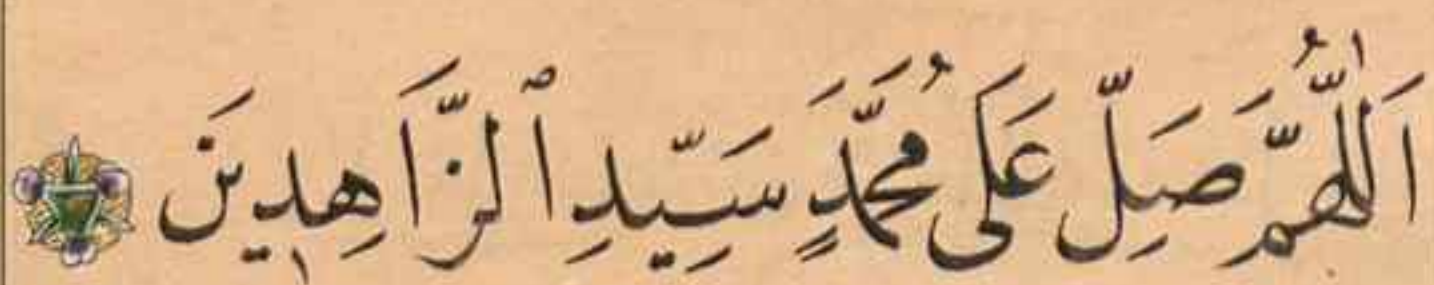 اَللّٰهُمَّ صَلِّ عَلَى مُحَمَّدٍ سَيِّدِ ٱلزَّاهِدِينَ